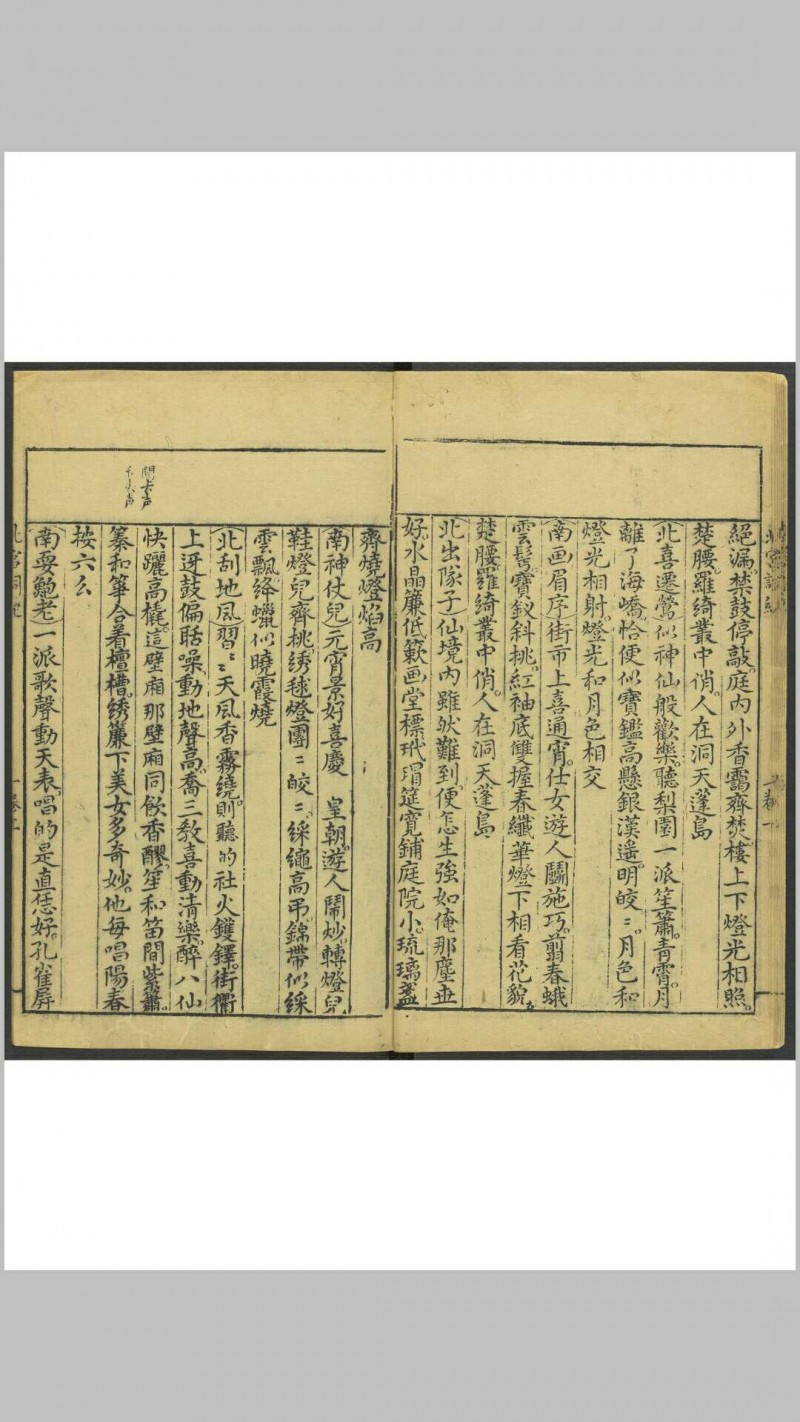 絕漏。禁鼓停敲。庭內外香靄齊焚。樓上下燈光相照。
楚腰。羅綺叢中俏。人在洞天蓬島
(北喜遷鶯)似神仙般歡樂。聽梨園一派笙簫。青霄。月
離了海嶠。恰便似寶鑑高懸銀漢遥。明皎〻。月色和
燈光相射。燈光和月色相交
(南画眉序)街市上喜通宵。仕女遊人鬭施巧。翦春蛾
雲髩寶釵斜挑。紅袖底雙握春纖華燈下相看花貌。
楚腰。羅綺叢中俏。人在洞天蓬島
(北出隊子)仙境內雖然難到便怎生強如俺那塵世
好。水晶簾低簌画堂標。玳瑁筵寬鋪庭院小。琉璃盞
齊燒燈焰高
(南神仗兒)元宵景好喜慶 皇朝。遊人鬧炒。轉燈兒。
鞋燈兒齊挑。綉毬燈團〻皎〻。綵繩高弔。錦帶似綵
雲飄。絳蠟似曉霞燒
(北刮地風)習〻天風香霧繞。則聽的社火鑊鐸。街衢
上迓鼓偏聒噪。動地聲高。喬三教喜動清樂。醉八仙
快躍高橇。這壁廂那壁廂同飲香醪。笙和笛間紫簫。
𥱧和箏合着檀槽。綉簾下美女多奇妙。他每唱陽春
按六么
(南耍鮑老)一派歌聲動天表。唱的是直恁好。孔雀屏